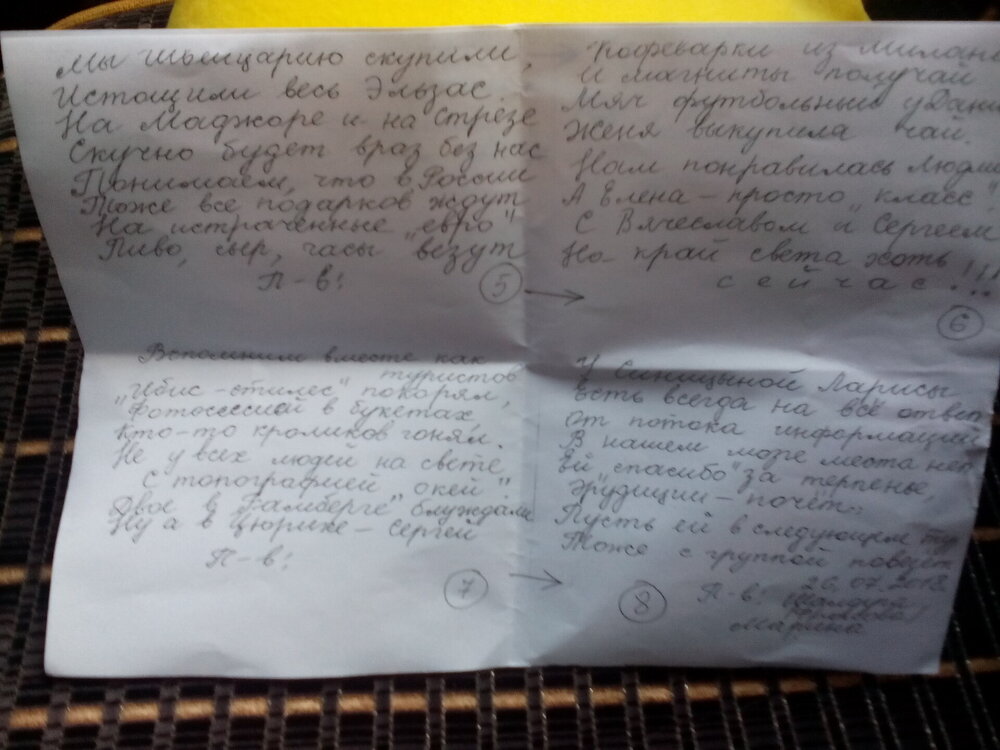 Мы Швейцарию скупили,
Истощили весь Эльзас.
На Маджоре и на Стрезе
Скучно будет враз без нас
Понимаем, что в России
Тоже все подарков ждут
На истраченные „евро"
Пиво, сыр, часы везут
П-в!
5
Кофеварки из Милана
И магниты получай
Мяч футбольный
Женя выкупила чай.
Нам понравилась
А Елена – просто „класс"
С Вячеславом и Сергеем
На край света хоть
сейчас!!!
6
Вспомним вместе как
туристов
„Ибис-стилес" покорял,
Фотосессией в букетах
Кто-то кроликов гонял.
Не у всех людей на свете
С топографией „окей".
Двое в Бамберге блуждали
Ну а в Цюрихе – Сергей
П-в!
7
У Синицыной Ларисы
Есть всегда на всё ответ
От потока информации
В нашем мозге места нет
Ей „спасибо" за терпенье,
Эрудиции – почёт.
Пусть ей в следующем туре
Тоже с группой повезёт
П-в!
26.07.2012
Марина
8